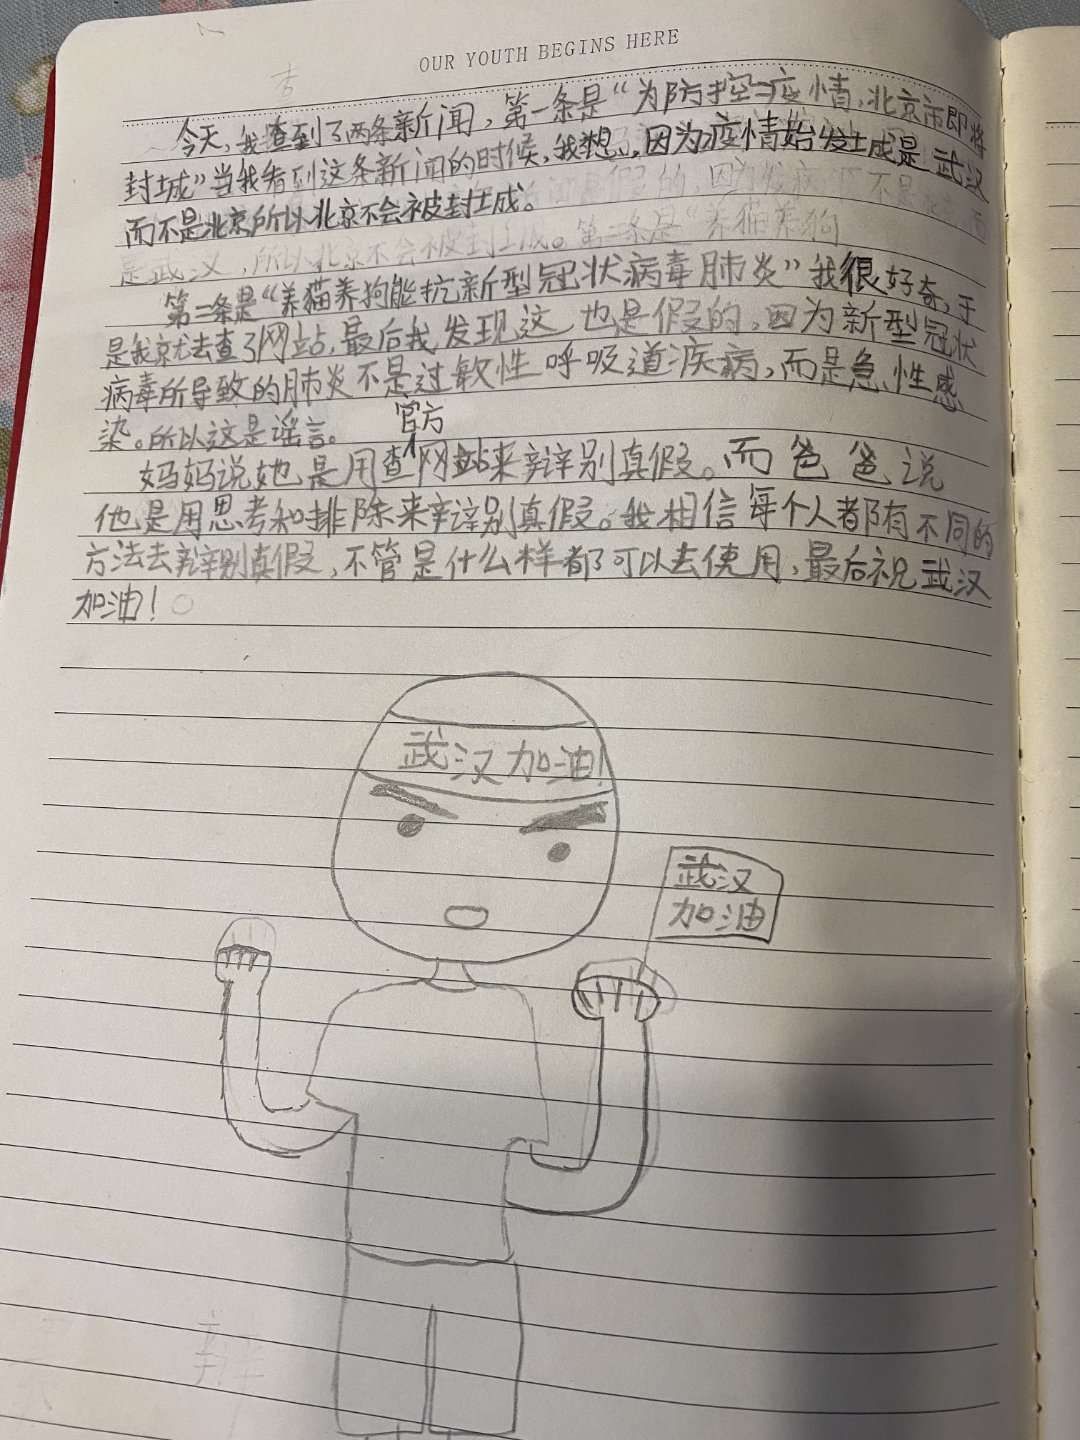 OUR YOUTH BEGINS HERE
今天，我查到了两条新闻，第一条是“为防控疫情，北京市即将
封城”当我看到这条新闻的时候，我想，因为疫情始发城是武汉
而不是北京所以北京不会被封城。
是武汉，所以北京不会被封城。第二条是“养猫养狗
第二条是“养猫养狗能抗新型冠状病毒肺炎”我很好奇，于
是我就去查了网站，最后我发现这也是假的，因为新型冠状
病毒所导致的肺炎不是过敏性呼吸道疾病，而是急性感
染。所以这是谣言。
官方
妈妈说她是用查网站来辩别真假。而爸爸说
他是用思考和排除来辩别真假。我相信每个人都有不同的
方法去辩别真假，不管是什么样都可以去使用，最后祝武汉
加油！
武汉加油！
武汉
加油